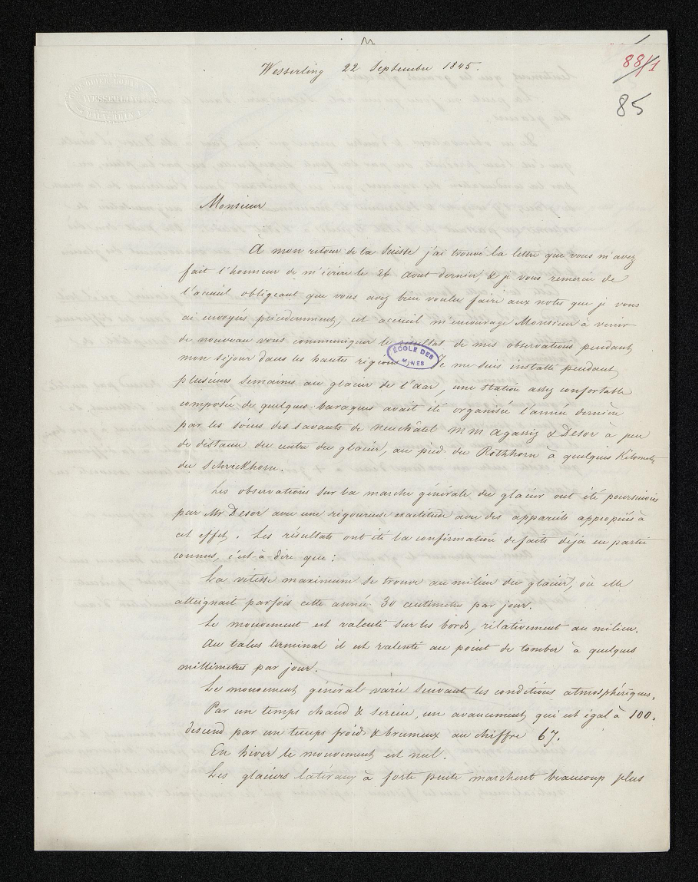 Wesserling 22 Septembre 1845.
88/1
85
Monsieur
A mon retour de la Suisse j'ai trouvé la lettre que vous m'avez
fait l'honneur de m'écrire le 26 Aout dernier & je vous remercie de
l'accueil obligeant que vous avez bien voulu faire aux notes que je vous
ai envoyées précédemment, cet accueil m'encourage Monsieur à venir
de nouveau vous communiquer le résultat de mes observations pendant
mon séjour dans les hautes régions. Je me suis installé pendant
ÉCOLE DES MINES
plusieurs semaines au glacier de l'aar, une station assez confortable
composée de quelques baraques avait été organisée l'année dernière
par les soins des savants de neuchâtel M M agassiz & Desor à peu
de distance du centre du glacier, au pied du Rothhorn à quelques Kilometr.
du Schreckhorn.
Les observations sur la marche générale du glacier ont été poursuivies
par Mr Desor avec une rigoureuse exactitude avec des appareils appropriés à
cet effet. Les résultats ont été la confirmation de faits déjà en partie
connus, c'est à dire que:
La vitesse maximum se trouve au milieu du glacier, où elle
atteignait parfois cette année 30 centimetres par jour.
Le mouvement est ralenti sur les bords, relativement au milieu.
Au talus terminal il est ralenti au point de tomber à quelques
millimetres par jour.
Le mouvement général varie suivant les conditions atmosphériques.
Par un temps chaud & serein, un avancement qui est égal à 100.
descend par un temps froid & brumeux au chiffre 67.
En hiver le mouvement est nul.
Les glaciers lateraux à forte pente marchent beaucoup plus